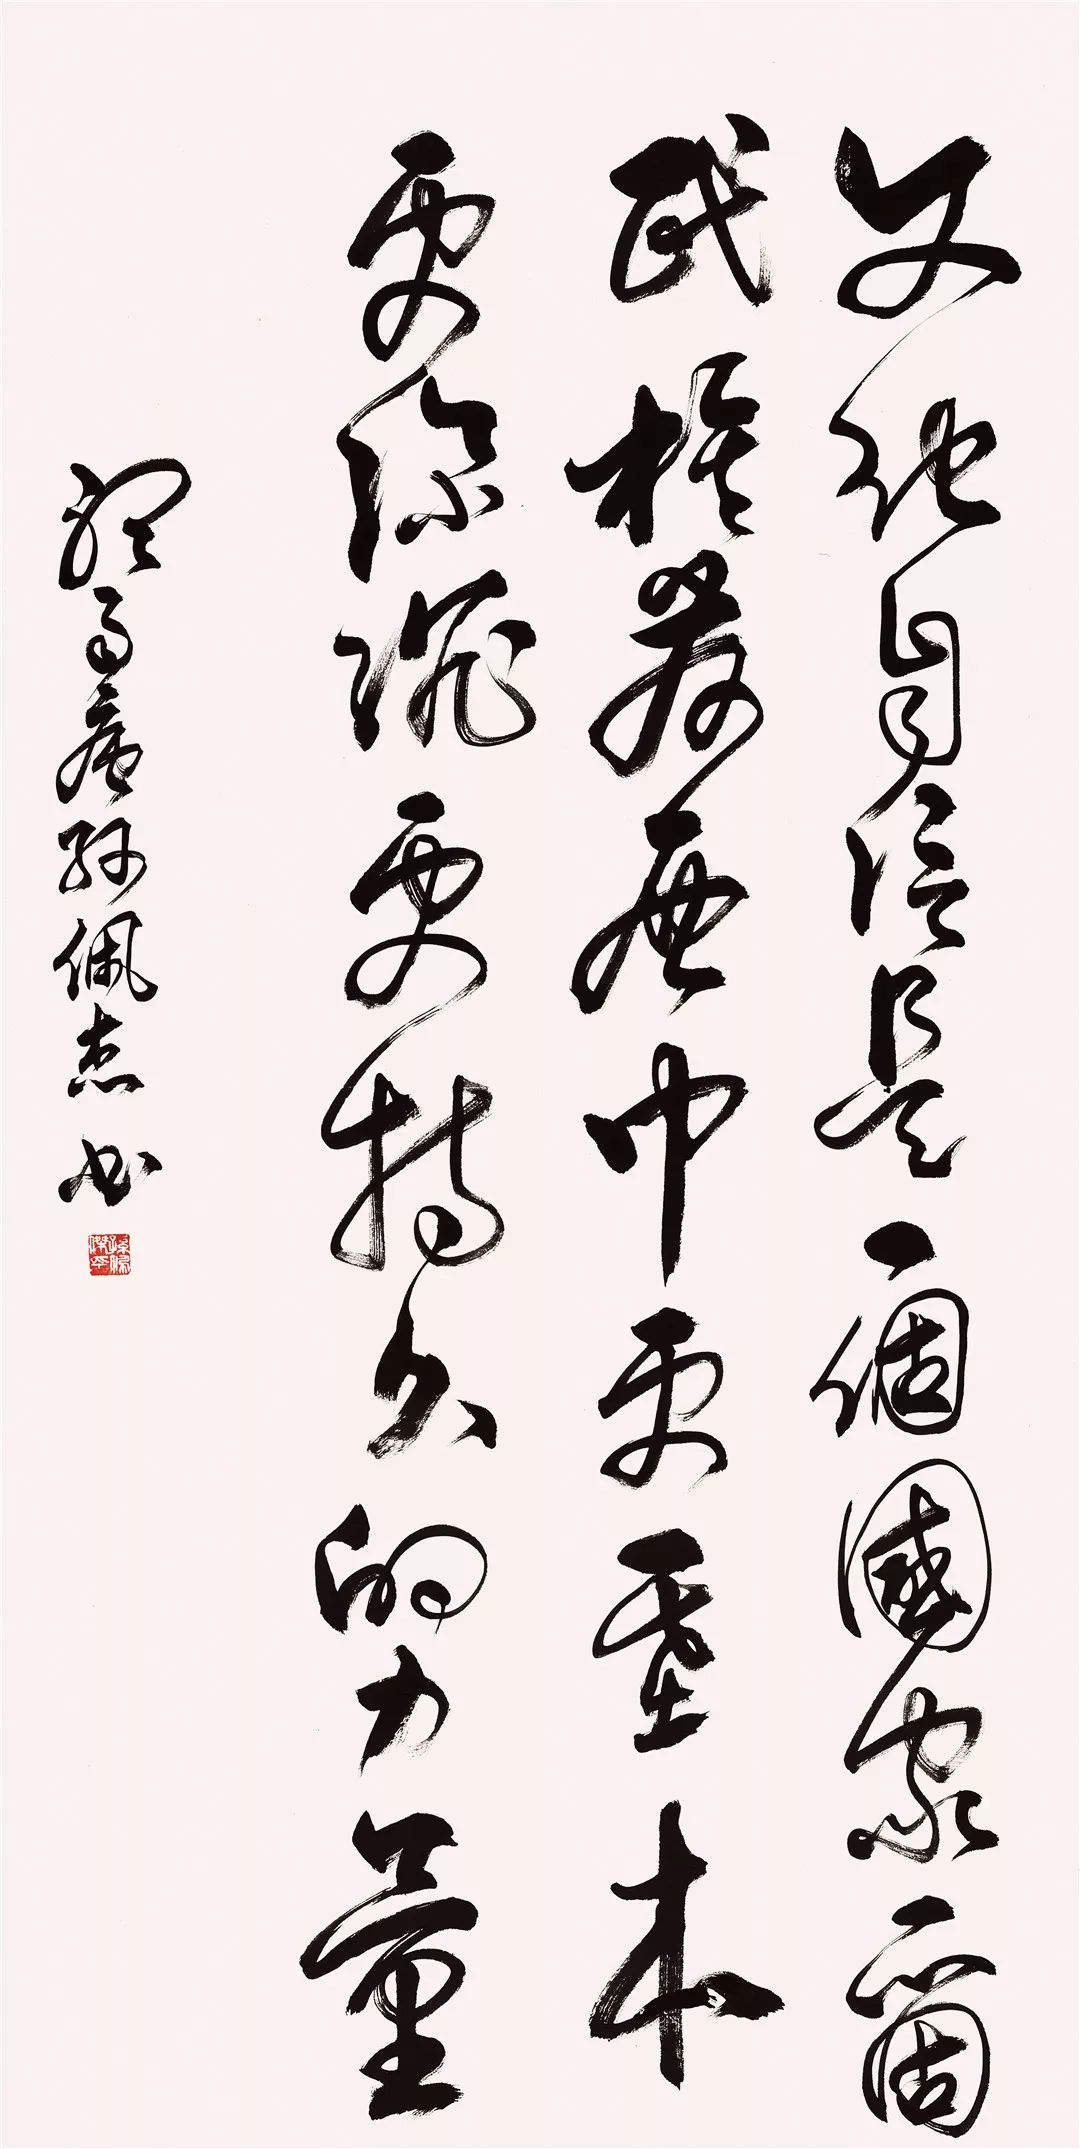 文化自信是一個國家一箇
民族發展中更基本
更深沉更持久的力量
孫佩杰书